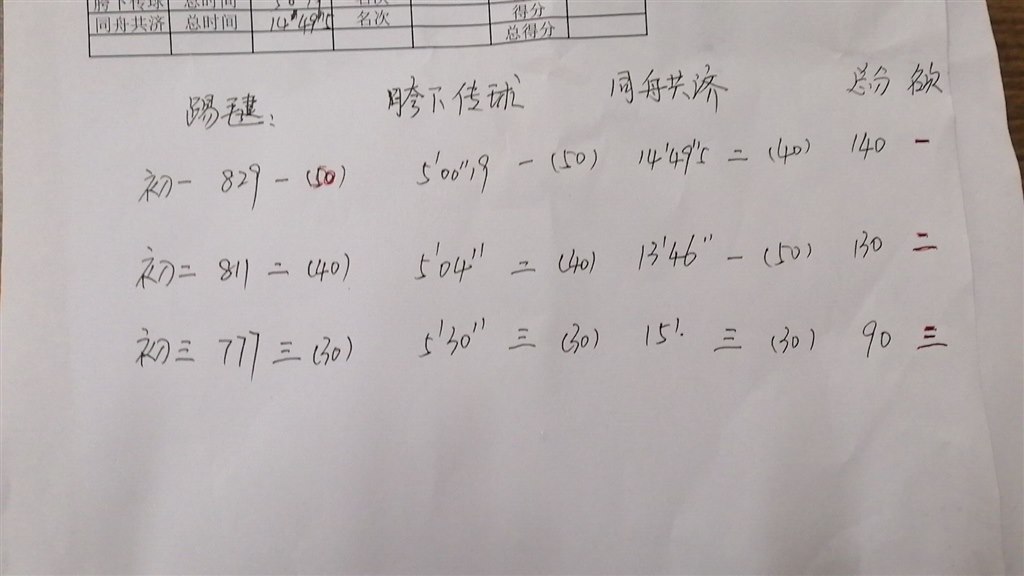 胯下传球 总时间 名次
同舟共济 总时间 14'49"5 名次 得分
总得分
踢毽: 胯下传球 同舟共济 总分 名次
初一 829 一 (50) 5'00"19 一 (50) 14'49"5 二 (40) 140 一
初二 811 二 (40) 5'04" 二 (40) 13'46" 一 (50) 130 二
初三 777 三 (30) 5'30" 三 (30) 15'. 三 (30) 90 三